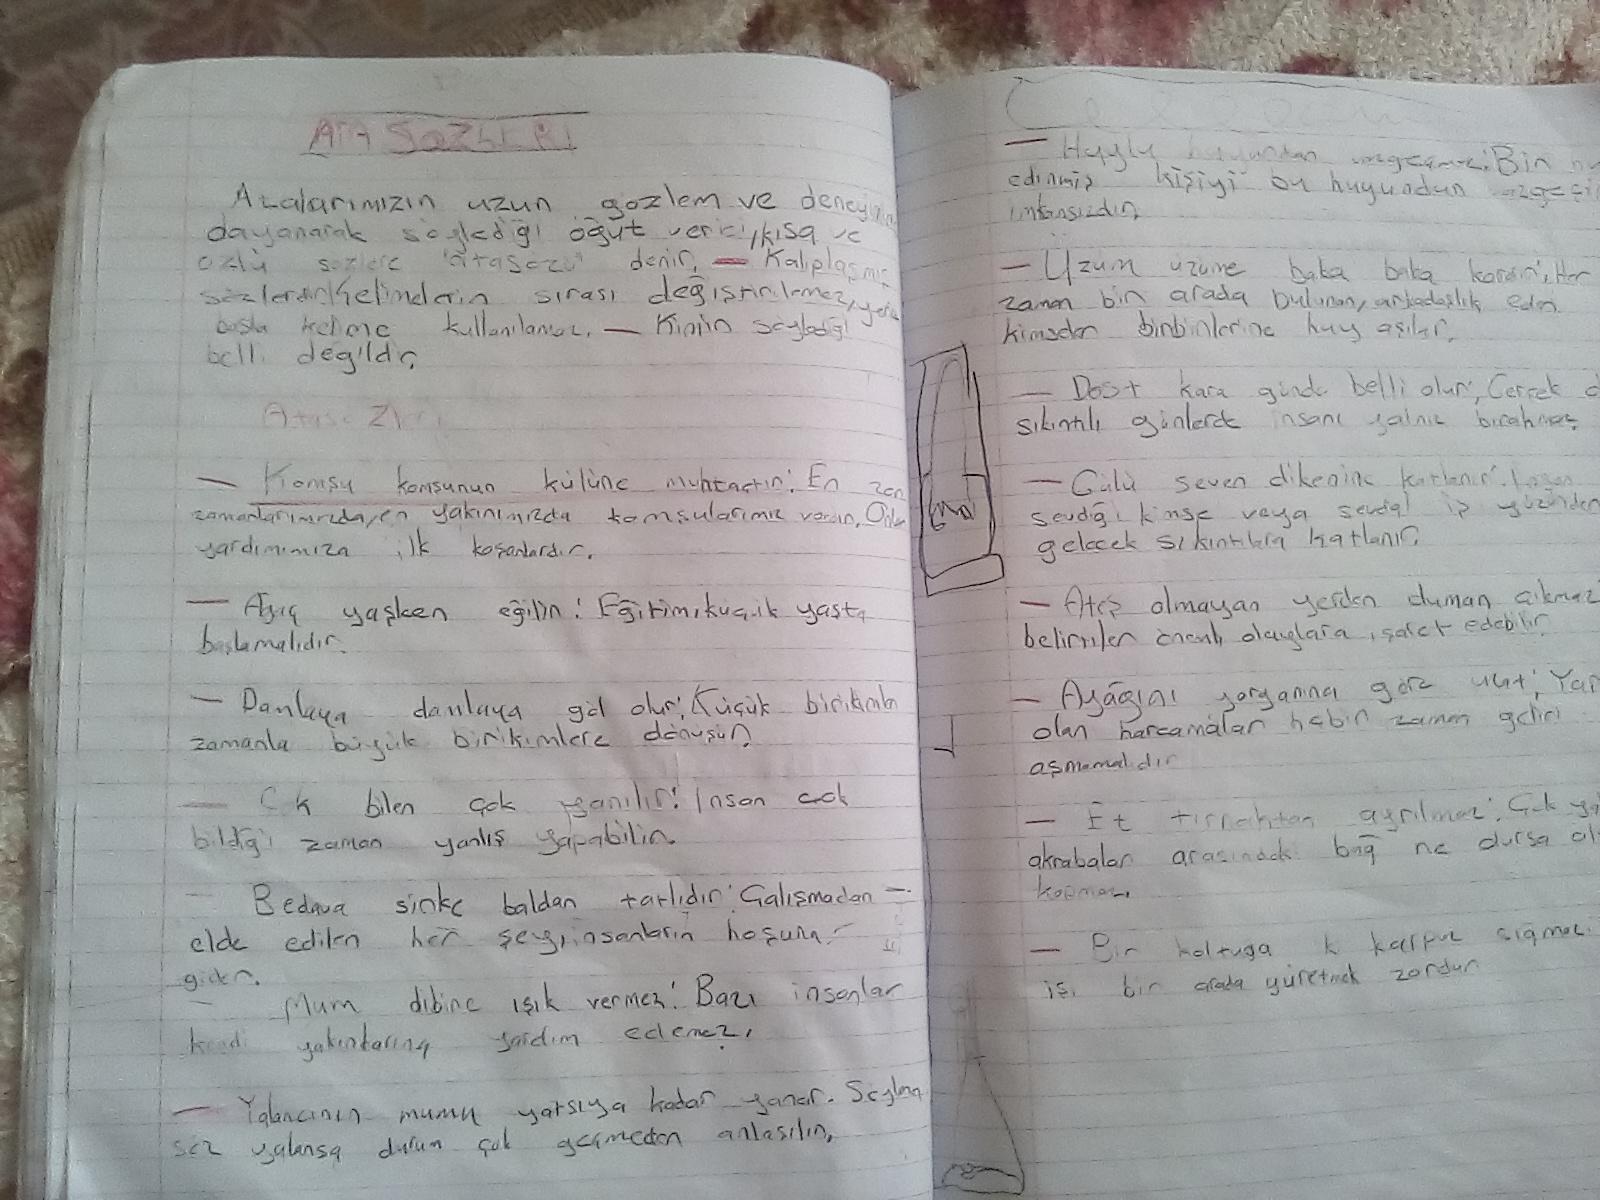 ATA SÖZLERİ
Atalarımızın uzun gözlem ve
dayanarak söylediği öğüt verici, kısa ve
özlü sözlere "atasözü" denir. — Kalıplaşmış
sözlerdir. Kelimelerin sırası değiştirilemez, yerine
başka kelime kullanılamaz. — Kimin söylediği
belli değildir.
— Komşu komşunun külüne muhtaçtır: En zor
zamanlarımızda, en yakınımızda komşularımız vardır. Onlar
yardımımıza ilk koşanlardır.
— Ağaç yaşken eğilir: Eğitim, küçük yaşta
başlamalıdır.
— Damlaya damlaya göl olur: Küçük birikimler
zamanla büyük birikimlere dönüşür.
— Çok bilen çok yanılır: İnsan çok
bildiği zaman yanlış yapabilir.
— Bedava sirke baldan tatlıdır: Çalışmadan
elde edilen her şey, insanların hoşuna
gider.
— Mum dibine ışık vermez: Bazı insanlar
kendi yakınlarına yardım edemez.
— Yalancının mumu yatsıya kadar yanar. Söylenen
söz yalansa durum çok geçmeden anlaşılır.
— Huylu huyundan vazgeçmez: Bir
edinmiş kişiyi bu huyundan
imkansızdır.
— Üzüm üzüme baka baka kararır: Her
zaman bir arada bulunan, arkadaşlık eden
kimseler birbirlerine huy aşılar.
— Dost kara günde belli olur: Gerçek d
sıkıntılı günlerde insanı yalnız bırakmaz.
— Gülü seven dikenine katlanır: İnsan
sevdiği kimse veya sevdiği iş yüzünden
gelecek sıkıntılara katlanır.
— Ateş olmayan yerden duman çıkmaz
belirtiler önemli olaylara işaret edebilir.
— Ayağını yorganına göre uzat: Yap
olan harcamalar hiçbir zaman geliri
aşmamalıdır.
— Et tırnaktan ayrılmaz: Çok ya
akrabalar arasındaki bağ ne olursa ol
kopmaz.
— Bir koltuğa iki karpuz sığmaz:
işi bir arada yürütmek zordur.